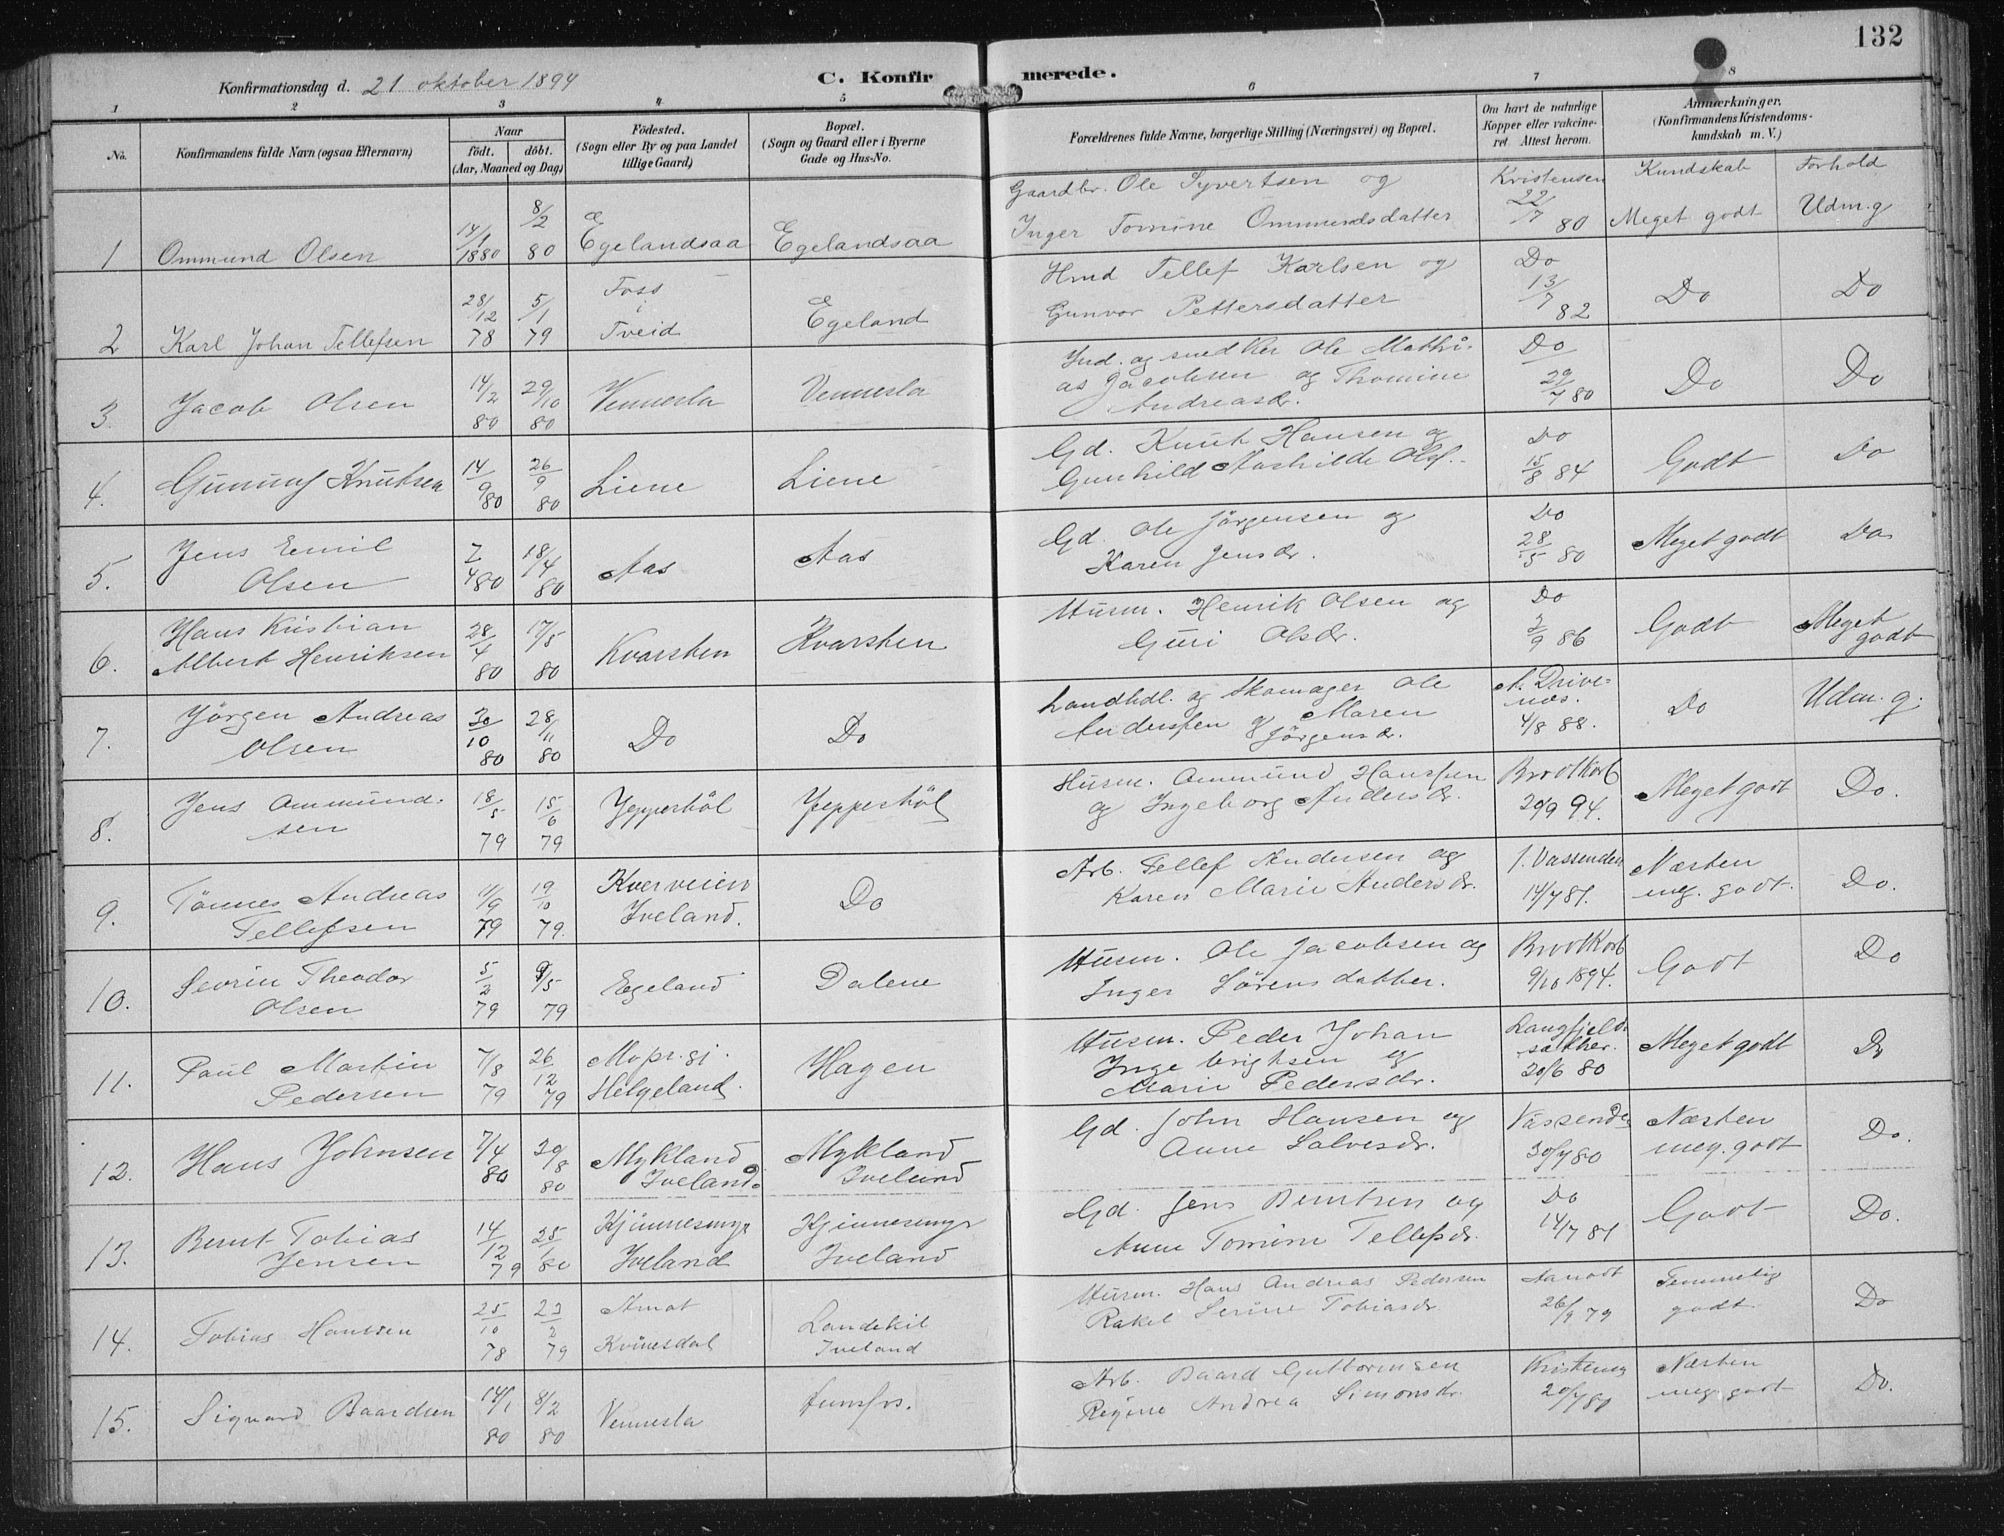 132
Konfirmationsdag d. 21 oktober 1894
C. Konfirmerede.
1 2 3 4 5 6 7 8
No.
Konfirmandens fulde Navn (ogsaa Efternavn)
Naar
födt. döbt.
(Aar, Maaned og Dag)
Födested.
(Sogn eller By og paa Landet
tillige Gaard)
Bopæl.
(Sogn og Gaard eller i Byerne
Gade og Hus-No.
Forældrenes fulde Navne, borgerlige Stilling (Næringsvei) og Bopæl.
Om havt de naturlige
Kopper eller vakcine-
ret. Attest herom.
Anmærkninger.
(Konfirmandens Kristendoms-
kundskab m. V.)
Kundskab Forhold
1 Ommund Olsen 14/1 1880 8/2 80 Egelandsaa Egelandsaa
Gaardbr. Ole Syvertsen og
Inger Tomine Ommundsdatter
Kristensen 22/7 80 Meget godt Udm.g
2 Karl Johan Tellefsen 28/12 78 5/1 79 Foss i Tveid Egeland
Hmd Tellef Karlsen og
Gunvor Pettersdatter
Do 13/7 82 Do Do
3. Jacob Olsen 14/2 80 29/10 80 Vennesla Vennesla
Ind. og snedker Ole Mathi-
as Jacobsen og Thomine
Andreasdr.
Do 29/7 80 Do Do
4. Gunnuf Knutsen 14/9 80 26/9 80 Liene Liene
Gd. Knut Hansen og
Gunhild Aashilde Olsd.
Do 15/8 84 Godt Do
5. Jens Emil
Olsen 7/4 80 18/4 80 Aas Aas
Gd. Ole Jörgensen og
Karen Jensdr.
Do 28/5 80 Meget godt Do
6. Hans Kristian
Albert Henriksen 28/4 80 17/5 80 Kvarsten Kvarsten
Husm. Henrik Olsen og
Guri Olsdr.
Do 2/9 86 Godt Meget
godt
7. Jörgen Andreas
Olsen 30/10 80 28/11 80 Do Do
Landhdl. og Skomager Ole
Anderssen og Maren
Jörgensdr.
A. Drive-
næs.
4/8 88. Do Udm. g.
8. Jens Ommund-
sen 18/5 79 15/6 79 Jepperböl Jepperböl
Husm. Ommund Hanssen
og Ingeborg Andersdr.
Brootkorb
20/9 94. Meget godt Do.
9. Tönnes Andreas
Tellefsen 11/9 79 19/10 79. Kverveien
Iveland. Do
Arb. Tellef Andersen og
Karen Marie Andersdr.
J. Vassenden
14/7 81. Næsten
meg. godt. Do.
10. Sevrin Theodor
Olsen 5/2 79 9/5 79 Egeland Dalene
Husm. Ole Jacobsen og
Inger Sörensdatter.
Brootkorb
9/10 1894. Godt Do
11. Paul Martin
Pedersen 7/8 79 26/12 79 Mo pr.gj.
Helgeland. Hagen
Husm. Peder Johan
Ingebrigtsen og
Marie Pedersdr.
Langfjeld
sæther.
20/6 80 Meget godt Do
12. Hans Johnsen 7/4 80 29/8 80 Mykland
Iveland. Mykland
Iveland
Gd. John Hansen og
Anne Salvesdr.
Vassenden
30/7 80 Næsten
meg. godt Do.
13. Bernt Tobias
Jensen 14/12 79 25/1 80 Kjönnesmyr
Iveland Kjönnesmyr
Iveland
Gd. Jens Berntsen og
Anne Tomine Tellefsdr.
Do
14/7 81 Godt Do.
14. Tobias Hanssen 25/10 78 23/2 79 Amot
Kvinesdal Landekil
Iveland
Husm. Hans Andreas Pedersen
Rakel Serine Tobiasdr
Aanodt
26/9 79 Temmelig
godt Do
15. Sigvard Baardsen 14/1 80 8/2 80 Vennesla Hunsfos.
Arb. Baard Guttormsen
Regine Andrea Simonsdr.
20/7 81 Næsten
meg godt Do.